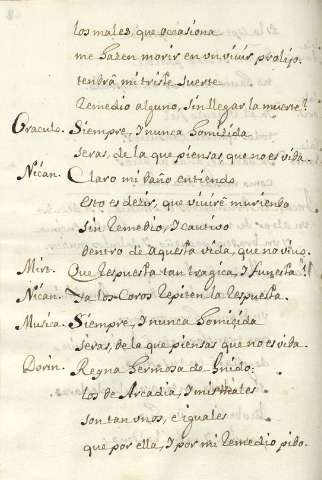 los males, que occasiona
me hazen morir en un vivir prolijo.
tendrâ mi triste suerte
Remedio alguno, sin llegar la muerte?
Oraculo. Siempre, I nunca homicida
seras, de la que piensas que no es vida.
Nican. Claro mi daño entiendo,
Esto es dezir, que viviré muriendo
sin Remedio, I cautivo
dentro de aquesta vida, que no vivo.
Mirt. Que Respuesta tan tragica, I funesta!
Nicán. Ya los Coros Repiten la Respuesta.
Musica. Siempre, I nunca homicida
seras, de la que piensas que no es vida.
Dorin. Reyna hermosa de Gnido:
los de Arcadia, I mis males
son tan unos, e iguales
que por ella, I por mi Remedio pido.